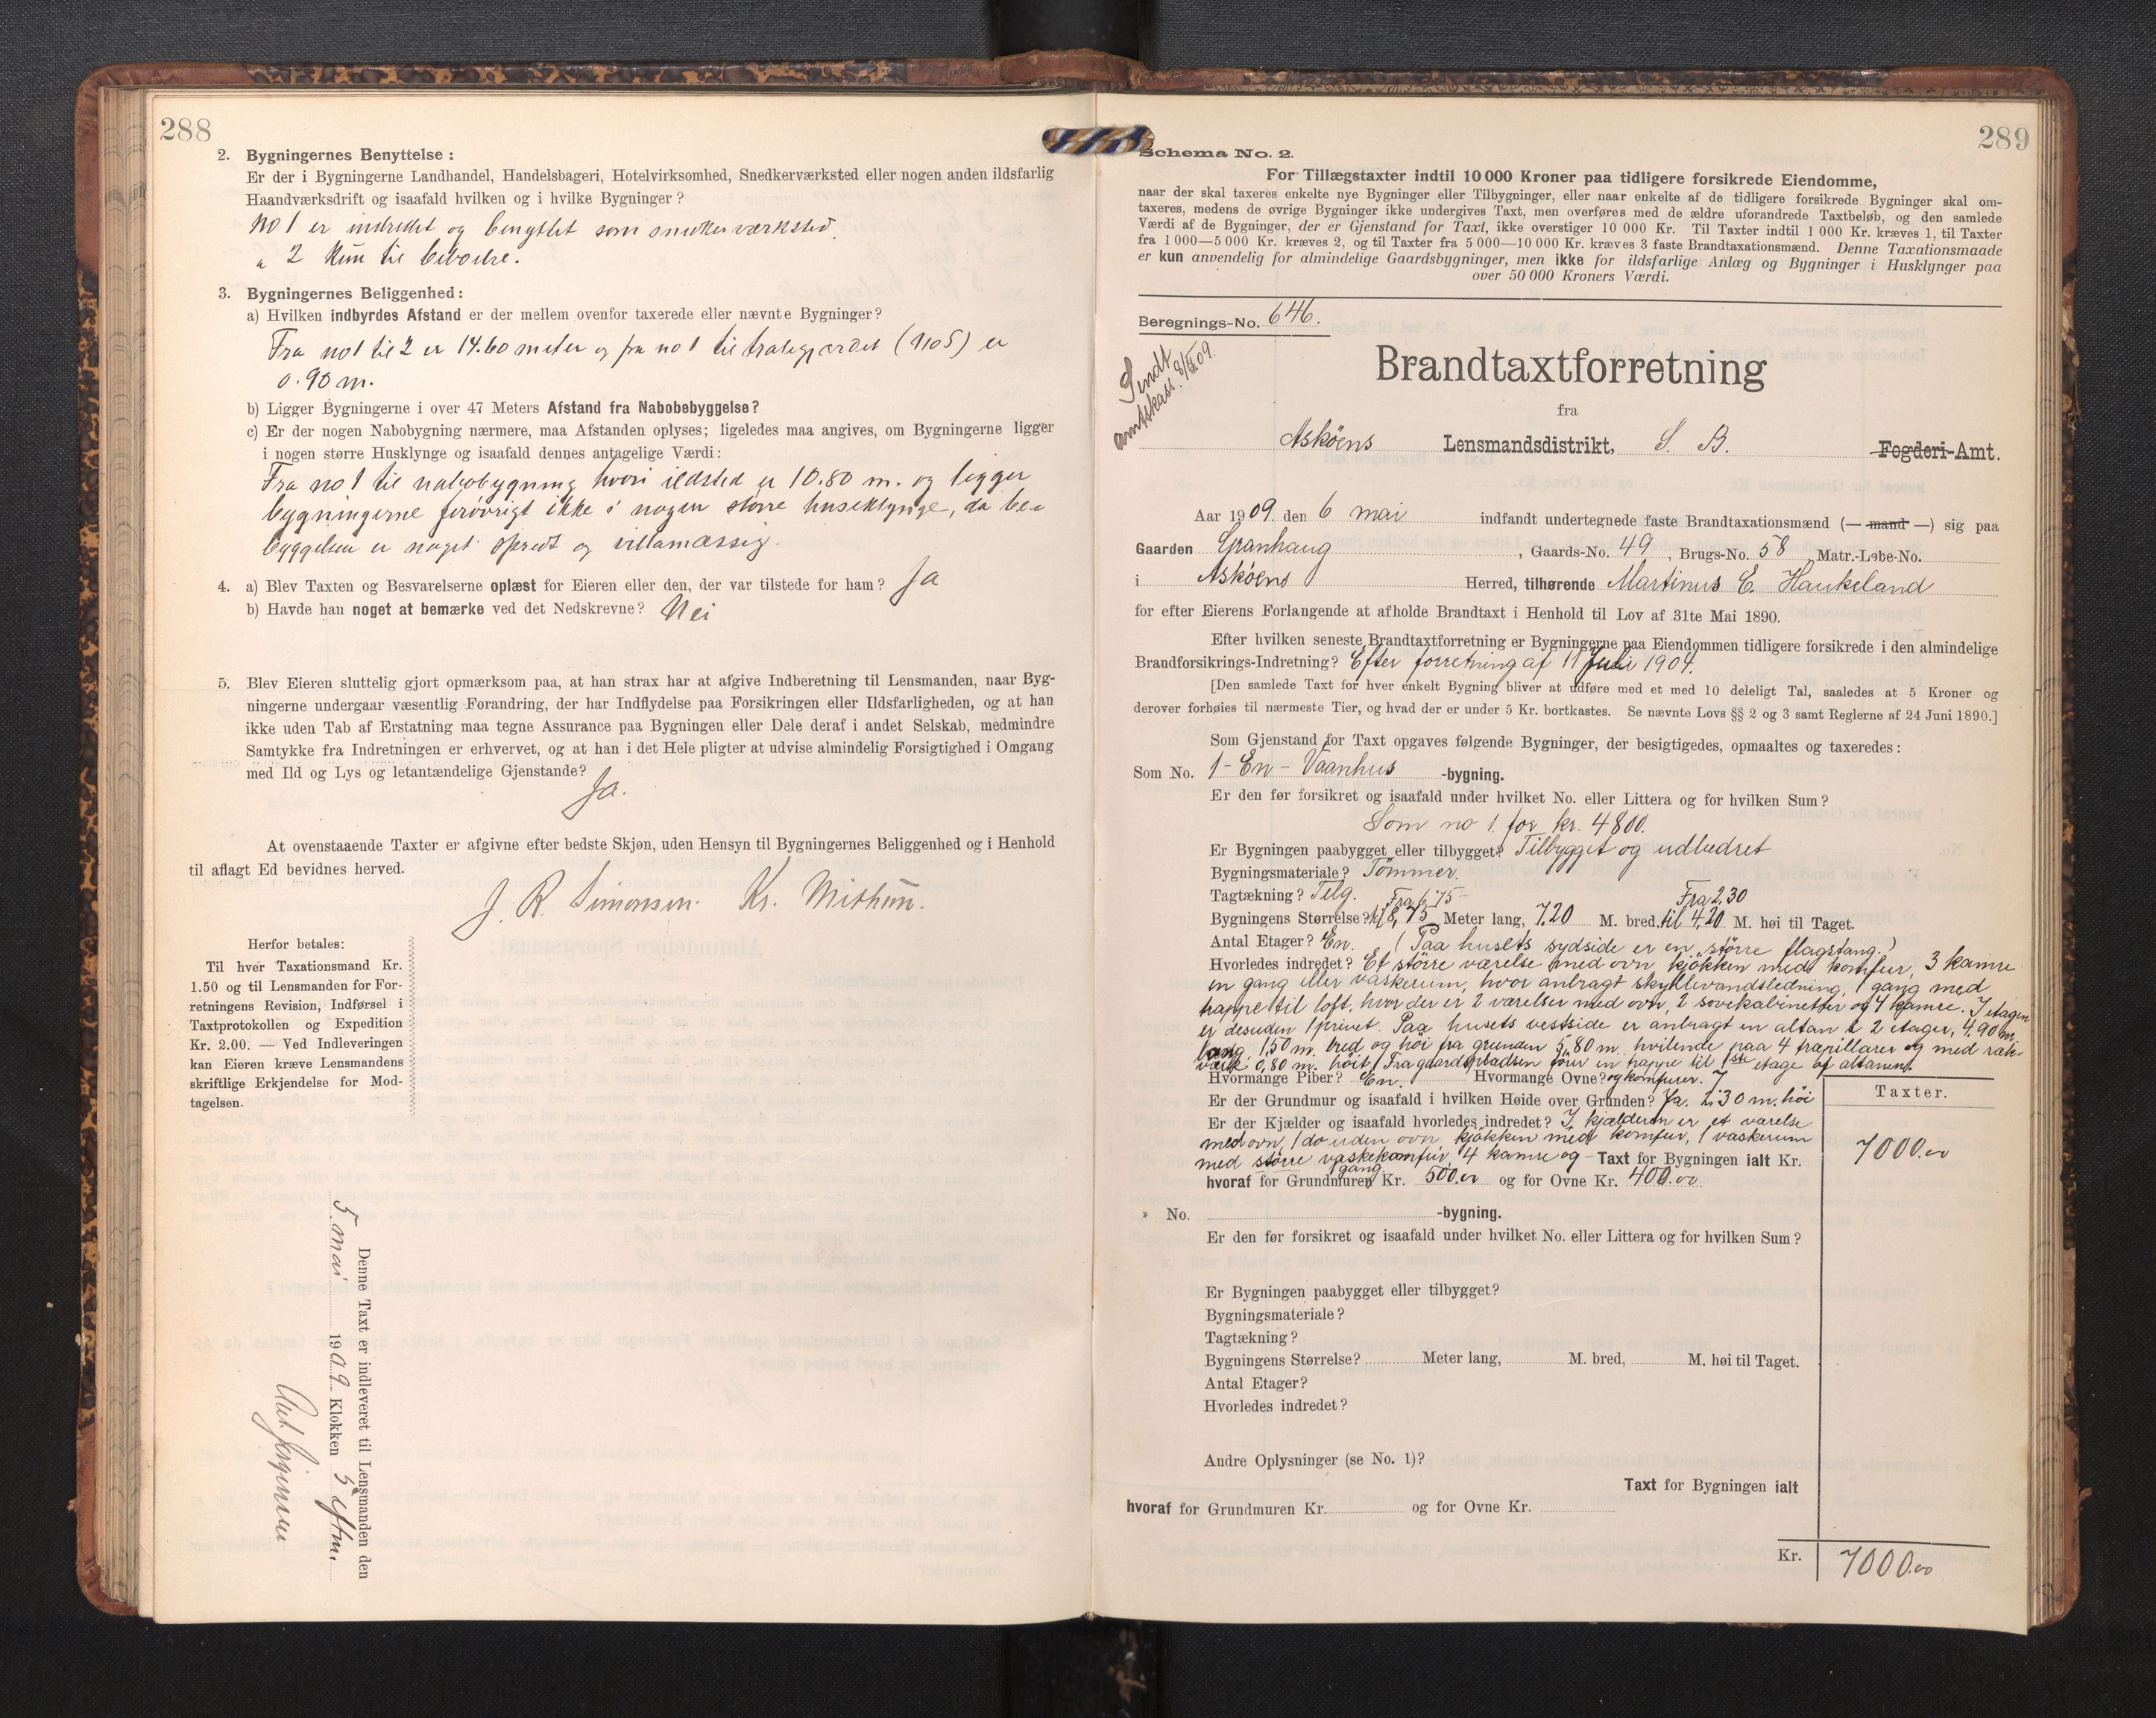 288
2. Bygningernes Benyttelse:
Er der i Bygningerne Landhandel, Handelsbageri, Hotelvirksomhed, Snedkerværksted eller nogen anden ildsfarlig
Haandværksdrift og isaafald hvilken og i hvilke Bygninger?
No 1 er indredet og benyttet som snekerværksted.
" 2 kun til beboelse.
3. Bygningernes Beliggenhed:
a) Hvilken indbyrdes Afstand er der mellem ovenfor taxerede eller nævnte Bygninger?
Fra no 1 til 2 er 14.60 meter og fra no 1 til (No 5) er
0.90 m.
b) Ligger Bygningerne i over 47 Meters Afstand fra Nabobebyggelse?
c) Er der nogen Nabobygning nærmere, maa Afstanden oplyses; ligeledes maa angives, om Bygningerne ligger
i nogen større Husklynge og isaafald dennes antagelige Værdi:
Fra no 1 til nabobygning hvori ildsted er 10.80 m. og ligger
bygningerne forøvrigt ikke i nogen større huseklynge, da be-
byggelsen er noget spredt og villamæssig.
4. a) Blev Taxten og Besvarelserne oplæst for Eieren eller den, der var tilstede for ham? Ja
b) Havde han noget at bemærke ved det Nedskrevne? Nei
5. Blev Eieren sluttelig gjort opmærksom paa, at han strax har at afgive Indberetning til Lensmanden, naar Byg-
ningerne undergaar væsentlig Forandring, der har Indflydelse paa Forsikringen eller Ildsfarligheden, og at han
ikke uden Tab af Erstatning maa tegne Assurance paa Bygningen eller Dele deraf i andet Selskab, medmindre
Samtykke fra Indretningen er erhvervet, og at han i det Hele pligter at udvise almindelig Forsigtighed i Omgang
med Ild og Lys og letantændelige Gjenstande?
Ja.
At ovenstaaende Taxter er afgivne efter bedste Skjøn, uden Hensyn til Bygningernes Beliggenhed og i Henhold
til aflagt Ed bevidnes herved.
J. R. Simonsen. Kr. Mithun.
Herfor betales:
Til hver Taxationsmand Kr.
1.50 og til Lensmanden for For-
retningens Revision, Indførsel i
Taxtprotokollen og Expedition
Kr. 2.00. — Ved Indleveringen
kan Eieren kræve Lensmandens
skriftlige Erkjendelse for Mod-
tagelsen.
Denne Taxt er indleveret til Lensmanden den
5. mai 1909 Klokken 5 eftm.
289
Schema No. 2.
For Tillægstaxter indtil 10 000 Kroner paa tidligere forsikrede Eiendomme,
naar der skal taxeres enkelte nye Bygninger eller Tilbygninger, eller naar enkelte af de tidligere forsikrede Bygninger skal om-
taxeres, medens de øvrige Bygninger ikke undergives Taxt, men overføres med de ældre uforandrede Taxtbeløb, og den samlede
Værdi af de Bygninger, der er Gjenstand for Taxt, ikke overstiger 10 000 Kr. Til Taxter indtil 1 000 Kr. kræves 1, til Taxter
fra 1 000—5 000 Kr. kræves 2, og til Taxter fra 5 000—10 000 Kr. kræves 3 faste Brandtaxationsmænd. Denne Taxationsmaade
er kun anvendelig for almindelige Gaardsbygninger, men ikke for ildsfarlige Anlæg og Bygninger i Husklynger paa
over 50 000 Kroners Værdi.
Beregnings-No. 646.
Sendt
amtskass. 8/ 09.
Brandtaxtforretning
fra
Askøens Lensmandsdistrikt, S. B. Fogderi-Amt.
Aar 1909 den 6 mai indfandt undertegnede faste Brandtaxationsmænd (— mand —) sig paa
Gaarden Granhaug, Gaards-No. 49, Brugs-No. 58, Matr.-Løbe-No.
i Askøens Herred, tilhørende Martinus E. Haukeland
for efter Eierens Forlangende at afholde Brandtaxt i Henhold til Lov af 31te Mai 1890.
Efter hvilken seneste Brandtaxtforretning er Bygningerne paa Eiendommen tidligere forsikrede i den almindelige
Brandforsikrings-Indretning? Efter forretning af 11 Juli 1904.
[Den samlede Taxt for hver enkelt Bygning bliver at udføre med et med 10 deleligt Tal, saaledes at 5 Kroner og
derover forhøies til nærmeste Tier, og hvad der er under 5 Kr. bortkastes. Se nævnte Lovs §§ 2 og 3 samt Reglerne af 24 Juni 1890.]
Som Gjenstand for Taxt opgaves følgende Bygninger, der besigtigedes, opmaaltes og taxeredes:
Som No. 1 - En - Vaanhus -bygning.
Er den før forsikret og isaafald under hvilket No. eller Littera og for hvilken Sum?
Som no 1. for kr. 4800.
Er Bygningen paabygget eller tilbygget? Tilbygget og udbedret
Bygningsmateriale? Tømmer.
Tagtækning? Telg. Fra 6.75 Fra 2,30
Bygningens Størrelse? til 8,75 Meter lang, 7,20 M. bred, til 4,20 M. høi til Taget.
Antal Etager? En. (Paa husets sydside er en større flagstang.)
Hvorledes indredet? Et større værelse med ovn, kjøkken med komfur, 3 kamre
en gang eller vaskerum, hvor anbragt skyllevandsledning, 1 gang med
trappe til loft, hvor der er 2 værelser med ovn, 2 sovekabinetter og 4 kamre. I etagen
er desuden 1 privet. Paa husets vestside er anbragt en altan i 2 etager, 4,90 m.
lang, 1,50 m. bred og høi fra grunden 5,80 m. hvilende paa 4 træpillarer og med ræk-
værk 0,80 m. høit, Fra gaardspladsen fører en trappe til 1ste etage af altanen.
Hvormange Piber? En. Hvormange Ovne? og komfurer. 7
Er der Grundmur og isaafald i hvilken Høide over Grunden? Ja. 2.30 m. høi
Er der Kjælder og isaafald hvorledes indredet? I kjælderen er et værelse
med ovn, 1 do uden ovn, kjøkken med komfur, 1 vaskerum
med større vaskekomfur, 4 kamre og 1 gang. Taxt for Bygningen ialt Kr.
hvoraf for Grundmuren Kr. 500.00 og for Ovne Kr. 400.00
Taxter.
7000.00
» No. -bygning.
Er den før forsikret og isaafald under hvilket No. eller Littera og for hvilken Sum?
Er Bygningen paabygget eller tilbygget?
Bygningsmateriale?
Tagtækning?
Bygningens Størrelse? Meter lang, M. bred, M. høi til Taget.
Antal Etager?
Hvorledes indredet?
Andre Oplysninger (se No. 1)?
Taxt for Bygningen ialt
hvoraf for Grundmuren Kr. og for Ovne Kr.
Kr. 7000.00